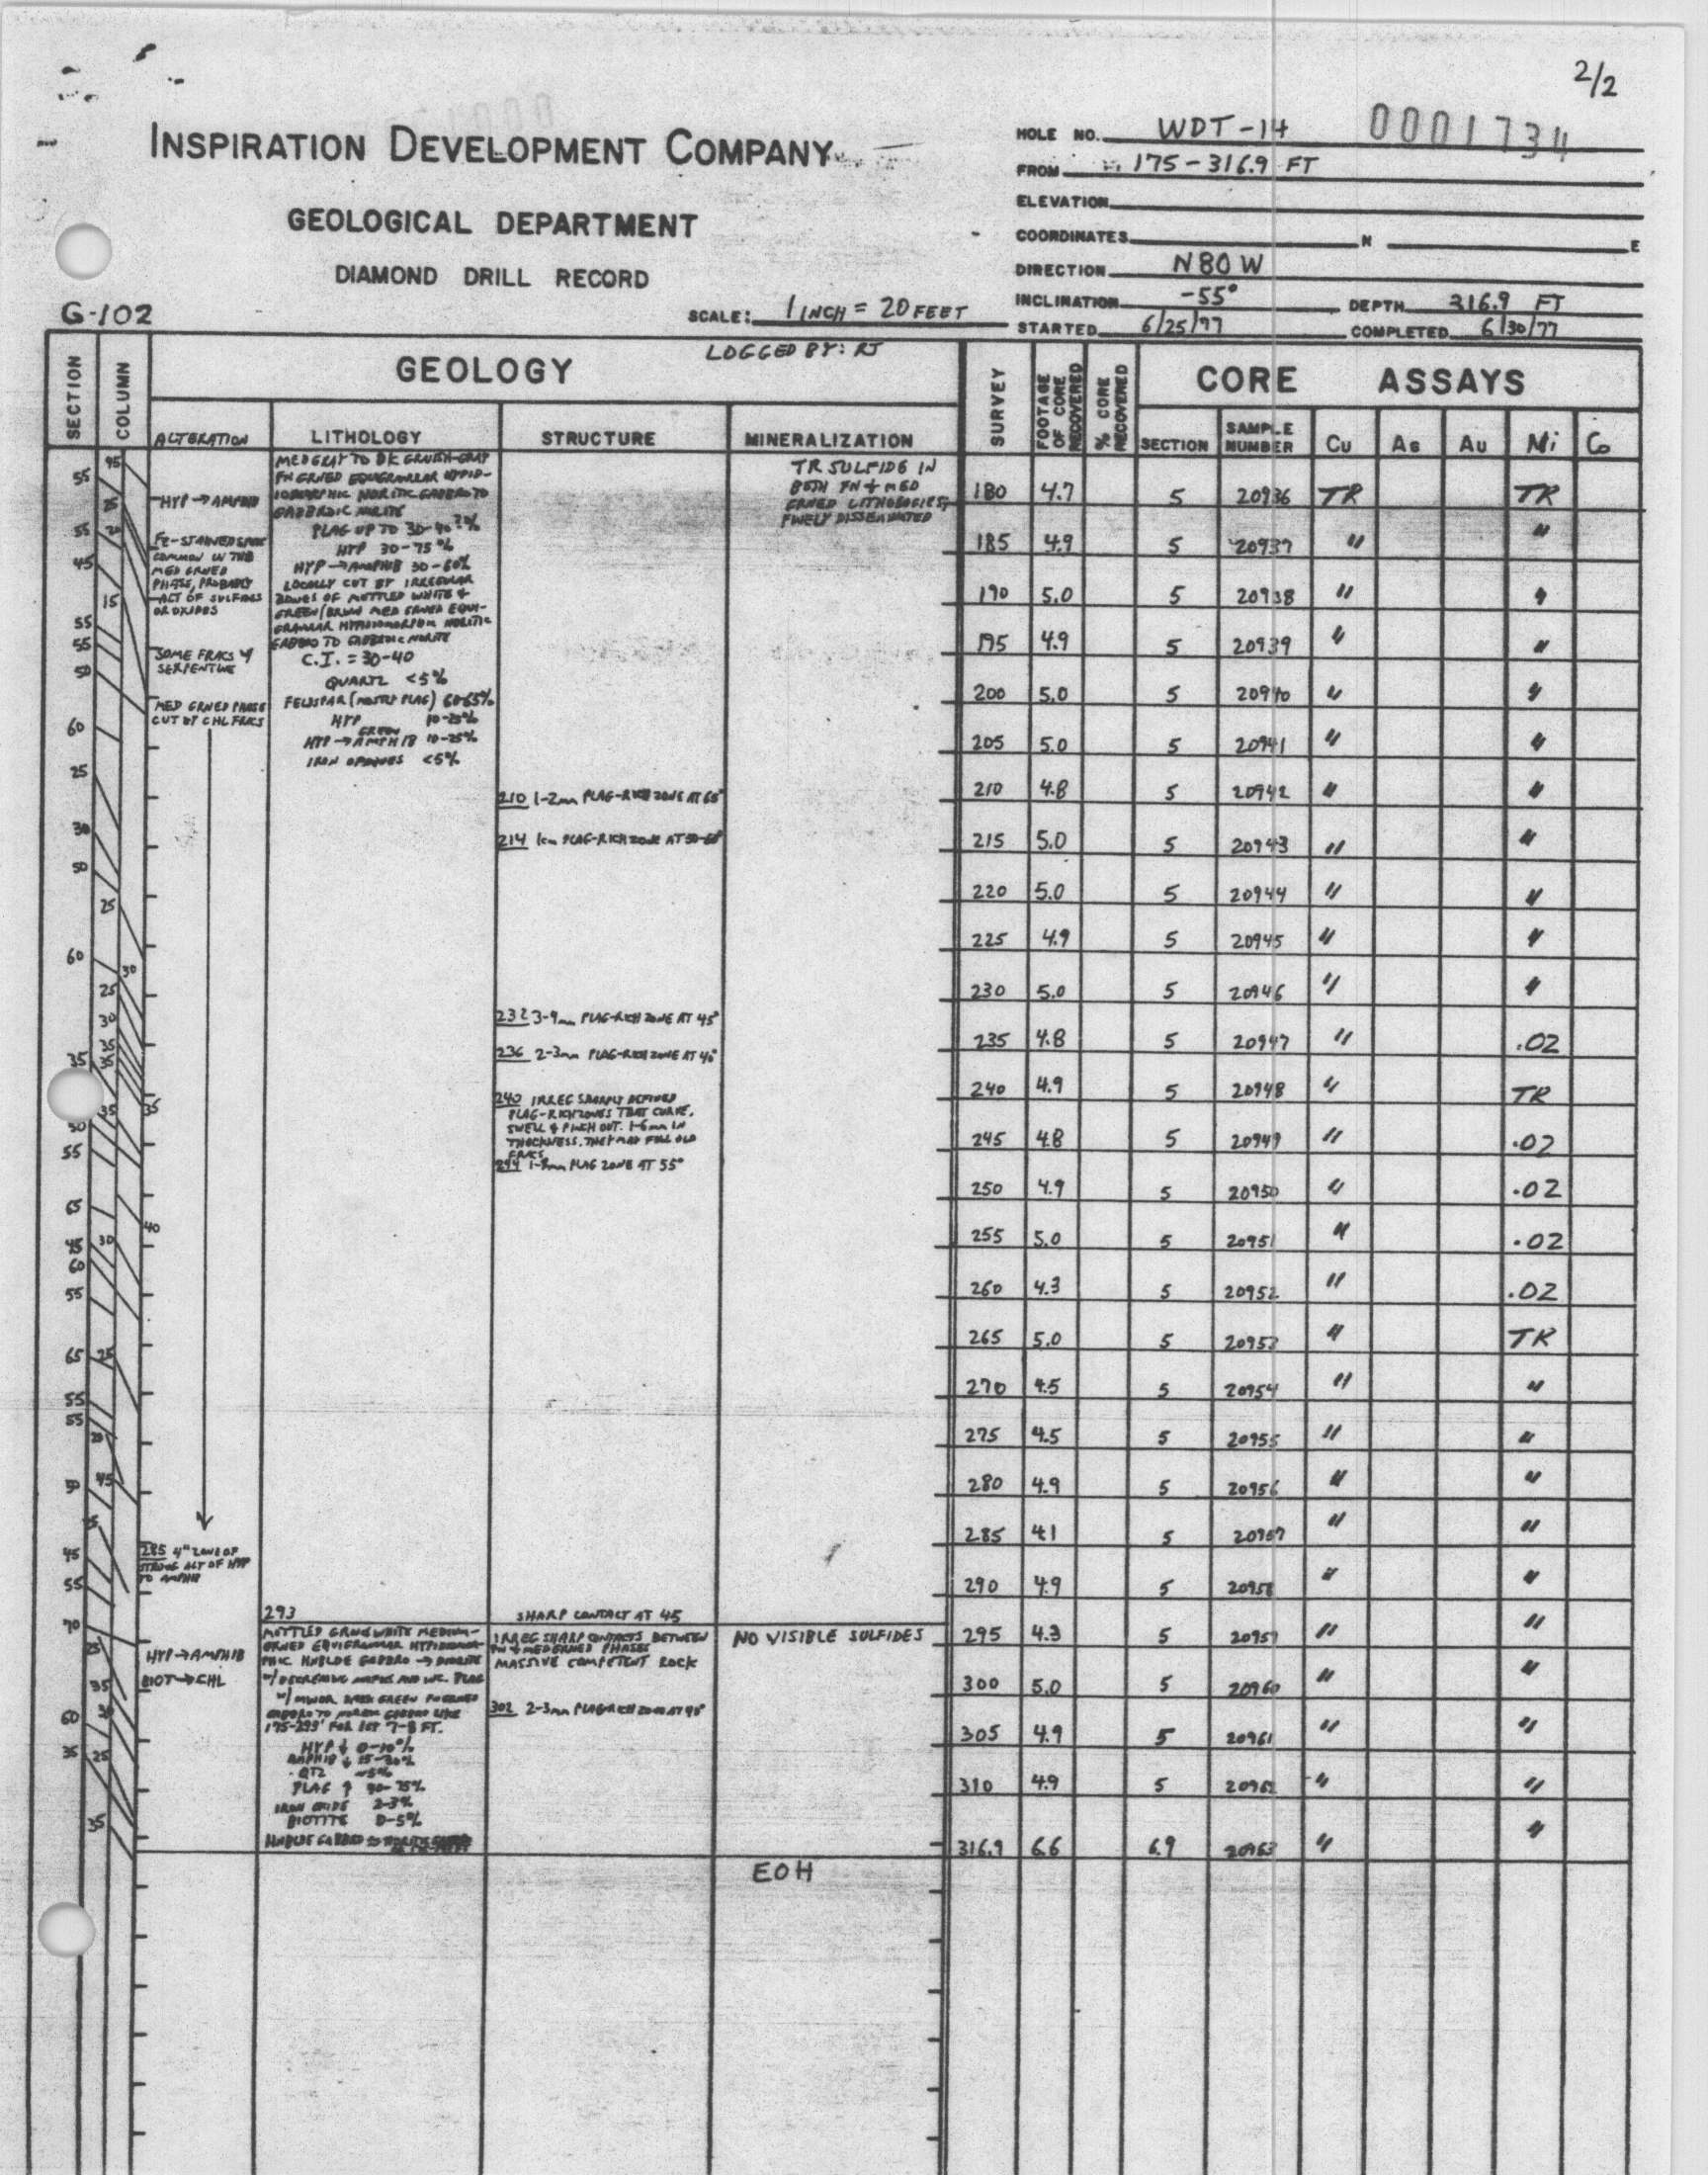 2/2
INSPIRATION DEVELOPMENT COMPANY
GEOLOGICAL DEPARTMENT
DIAMOND DRILL RECORD
G-102
SCALE: 1 INCH = 20 FEET
HOLE NO. WDT-14 0001734
FROM 175-316.9 FT
ELEVATION
COORDINATES N E
DIRECTION N 80 W
INCLINATION -55° DEPTH 316.9 FT
STARTED 6/25/77 COMPLETED 6/30/77
SECTION
COLUMN
GEOLOGY
LOGGED BY: RJ
ALTERATION LITHOLOGY STRUCTURE MINERALIZATION
SURVEY
FOOTAGE OF CORE RECOVERED
% CORE RECOVERED
CORE ASSAYS
SECTION SAMPLE NUMBER Cu AG Au Ni Co
HYP → AMPHIB
FE-STAINED
COMMON IN THE
MED GRNED
PHASE, PROBABLY
ALT OF SULFIDES
OR OXIDES
SOME FRACS W
SERPENTINE
MED GRNED PHASE
CUT BY CHL FRACS
285 4" ZONE OF
STRONG ALT OF HYP
TO AMPHIB
HYP → AMPHIB
BIOT → CHL
MED GRAY TO DK GRNISH-GRAY
FN GRNED EQUIGRANULAR HYPID-
IOMORPHIC NORITIC GABBRO TO
GABBROIC NORITE
PLAG UP TO 30-40?%
HYP 30-75%
HYP → AMPHIB 30-60%
LOCALLY CUT BY IRREGULAR
ZONES OF MOTTLED WHITE &
GREEN/BRWN MED GRNED EQUI-
GRANULAR HYPIDIOMORPHIC NORITIC
GABBRO TO GABBROIC NORITE
C.I. = 30-40
QUARTZ <5%
FELDSPAR (MOSTLY PLAG) 60-65%
HYP 10-25%
GREEN
HYP → AMPHIB 10-25%
IRON OPAQUES <5%
293
MOTTLED GRN & WHITE MEDIUM-
GRNED EQUIGRANULAR HYPIDIOMOR-
PHIC HNBLDE GABBRO → DIORITE
W/ DECREASING MAFICS AND INC. PLAG
W/ MINOR DARK GREEN FN GRNED
GABBRO TO NORITIC GABBRO LIKE
175-293' FOR 1ST 7-8 FT.
HYP ↓ 0-10%
AMPHIB ↓ 15-30%
QTZ ~5%
PLAG ↑ 30-75%
IRON OXIDE 2-3%
BIOTITE 0-5%
210 1-2mm PLAG-RICH ZONE AT 65°
214 1cm PLAG-RICH ZONE AT 50-60°
232 3-9mm PLAG-RICH ZONE AT 45°
236 2-3mm PLAG-RICH ZONE AT 40°
240 IRREG SHARPLY DEFINED
PLAG-RICH ZONES THAT CURVE,
SWELL & PINCH OUT. 1-6mm IN
THICKNESS. THEY MAY FILL OLD
FRACS
244 PLAG ZONE AT 55°
SHARP CONTACT AT 45
IRREG SHARP CONTACTS BETWEEN
FN & MED GRNED PHASES
MASSIVE COMPETENT ROCK
302 2-3mm PLAG-RICH ZONE AT 40°
TR SULFIDE IN
BOTH FN & MED
GRNED LITHOLOGIES,
FINELY DISSEMINATED
NO VISIBLE SULFIDES
EOH
180 4.7 5 20936 TR TR
185 4.9 5 20937 " "
190 5.0 5 20938 " "
195 4.9 5 20939 " "
200 5.0 5 20940 " "
205 5.0 5 20941 " "
210 4.8 5 20942 " "
215 5.0 5 20943 " "
220 5.0 5 20944 " "
225 4.9 5 20945 " "
230 5.0 5 20946 " "
235 4.8 5 20947 " .02
240 4.9 5 20948 " TR
245 4.8 5 20949 " .02
250 4.9 5 20950 " .02
255 5.0 5 20951 " .02
260 4.3 5 20952 " .02
265 5.0 5 20953 " TR
270 4.5 5 20954 " "
275 4.5 5 20955 " "
280 4.9 5 20956 " "
285 4.1 5 20957 " "
290 4.9 5 20958 " "
295 4.3 5 20959 " "
300 5.0 5 20960 " "
305 4.9 5 20961 " "
310 4.9 5 20962 " "
316.9 6.6 6.9 20963 " "